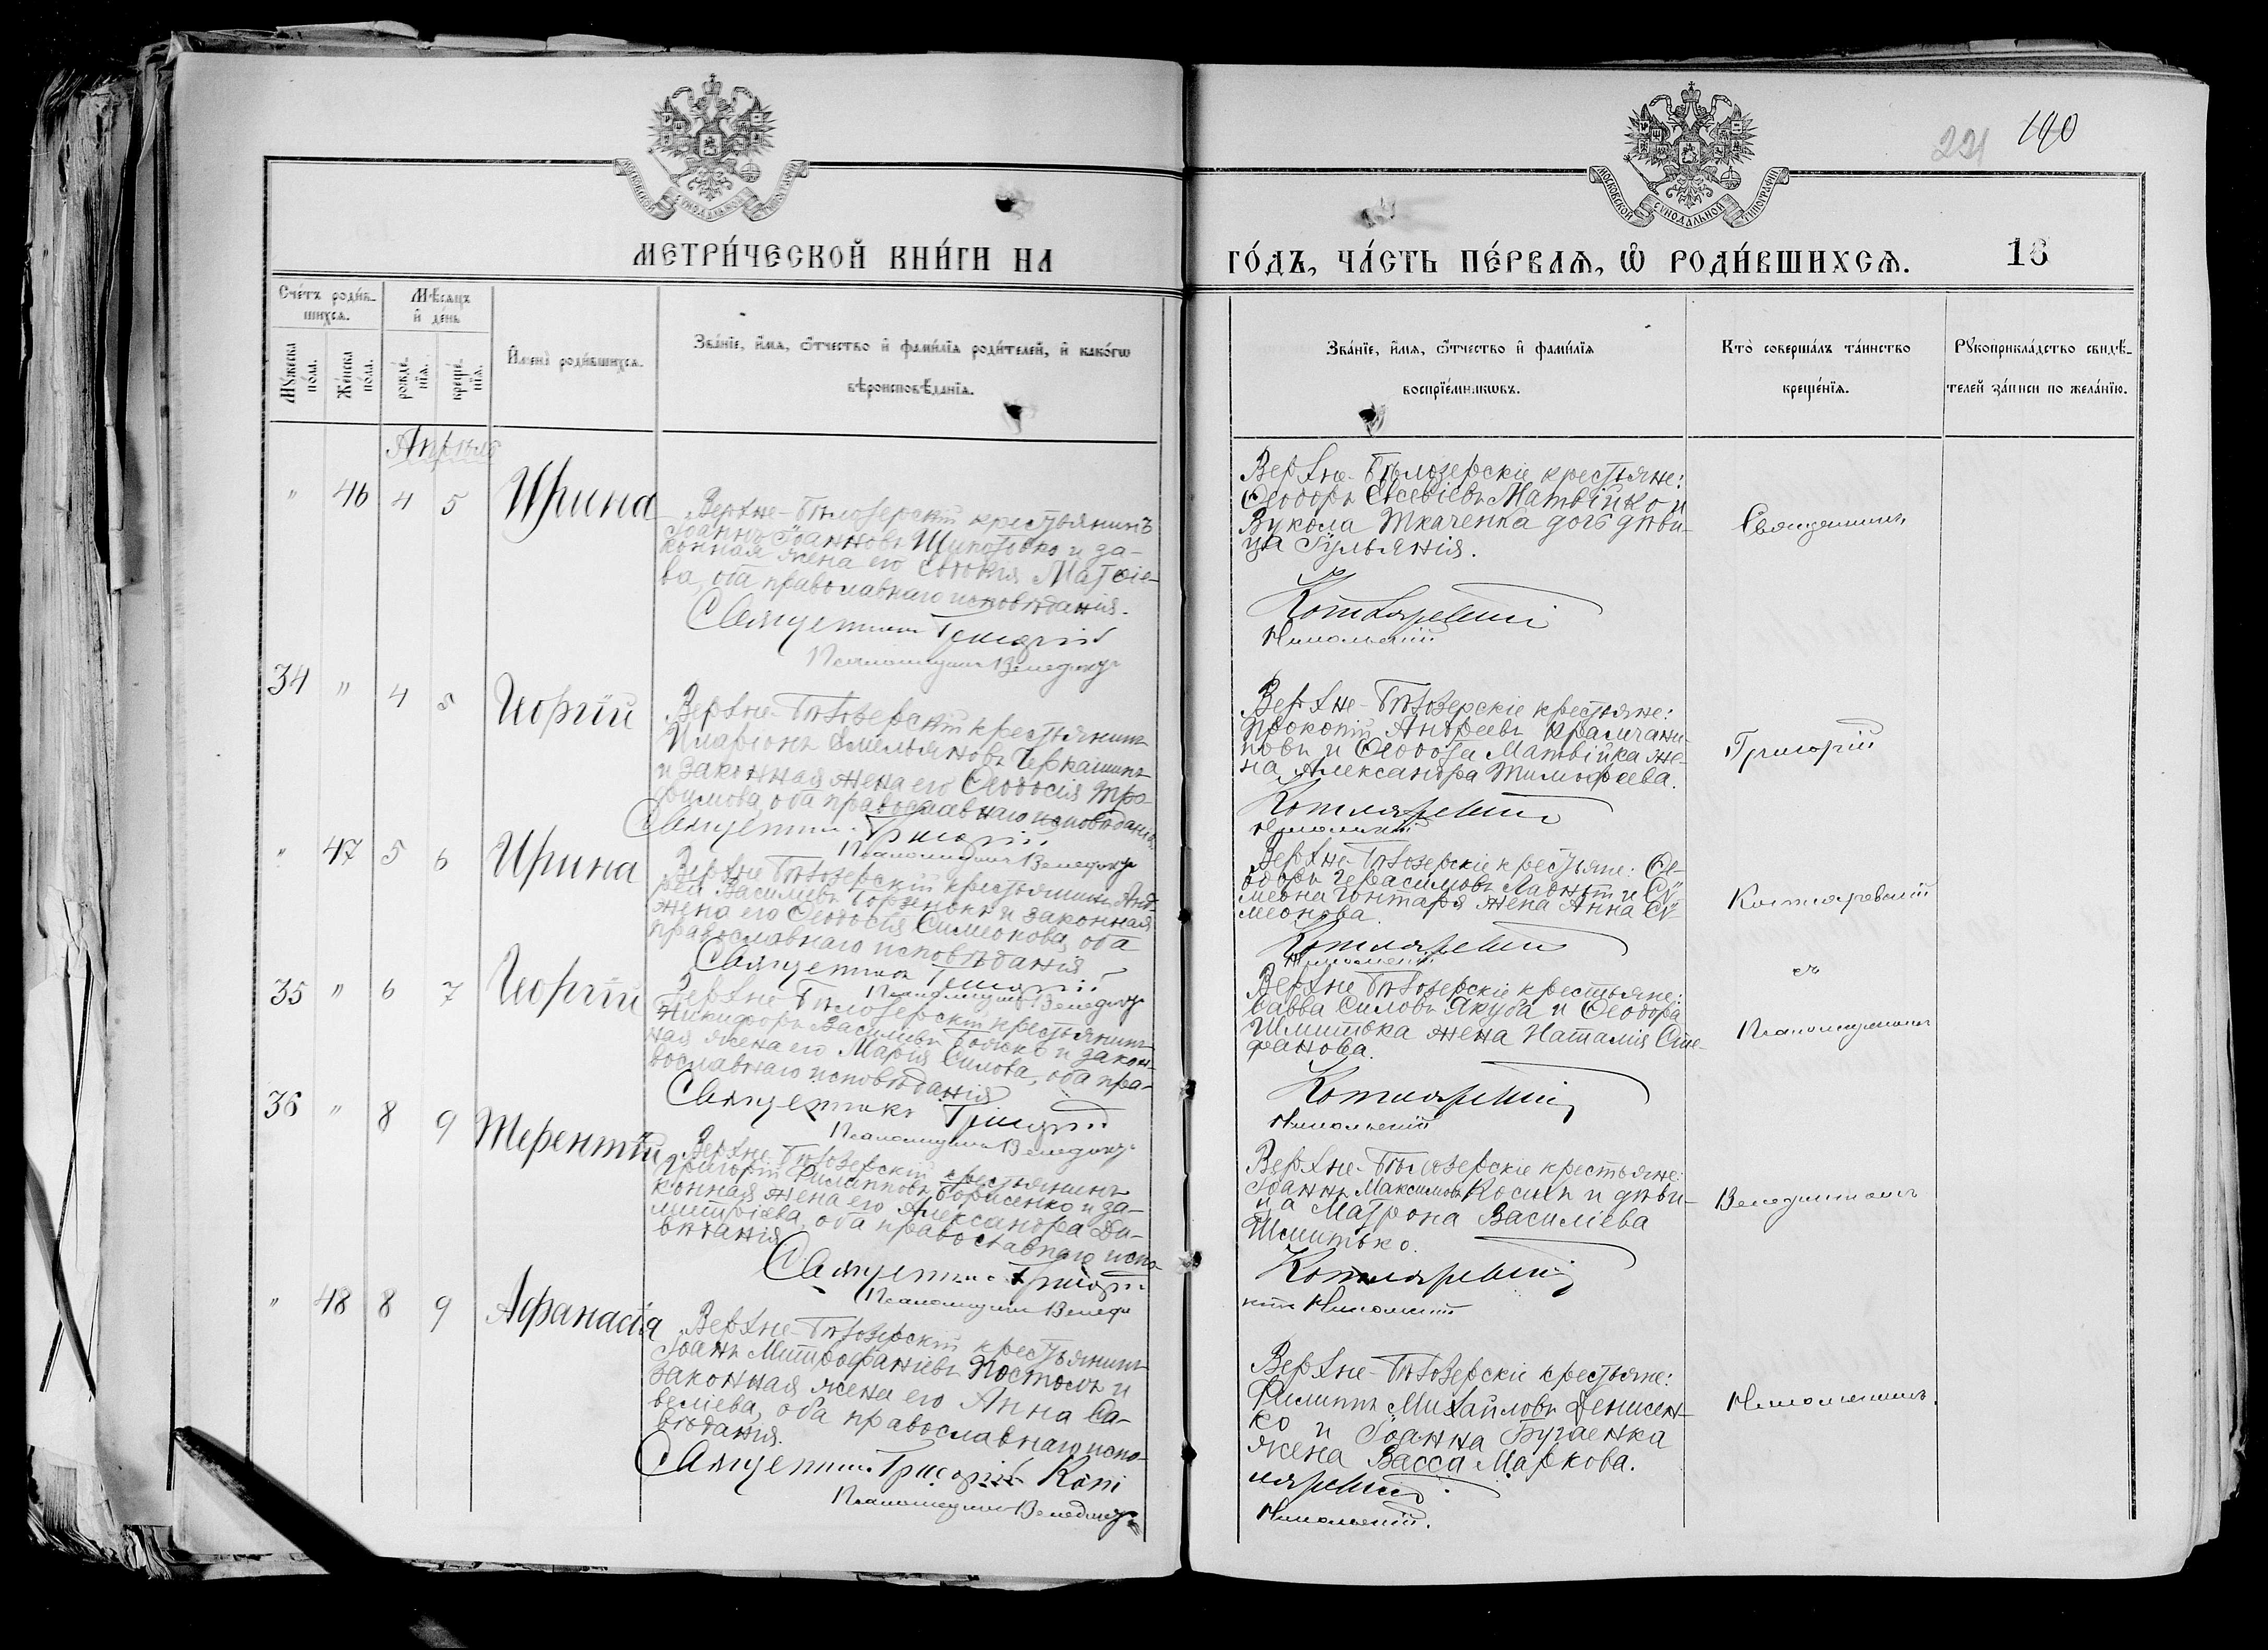 221 140
МОСКОВСКОЙ СУНОДАЛЬНОЙ ТИПОГРАФІИ
МОСКОВСКОЙ СУНОДАЛЬНОЙ ТИПОГРАФІИ
МЕТРИ́ЧЕСКОЙ КНИ́ГИ НА
ГО́ДЪ, ЧА́СТЬ ПЕ́РВАѦ, Ѡ РОДИ́ВШИХСѦ. 18
Сче́тъ роди́в-
шихсѧ.
Мѣ́сѧцъ
и҆ день
Мꙋ́жеска
по́ла.
Же́нска
по́ла.
рожде́-
нїѧ.
креще́-
нїѧ.
И҆мена̀ роди́вшихсѧ.
Зва́нїе, и҆́мѧ, ѻ҆́тчество и҆ фами́лїѧ роди́телей, и҆ како́гѡ
вѣроисповѣ́данїѧ.
Зва́нїе, и҆́мѧ, ѻ҆́тчество и҆ фами́лїѧ
воспрїе́мникѡвъ.
Кто̀ соверша́лъ та́инство
креще́нїѧ.
Рꙋкоприкла́дство свидѣ́-
телей за́писи по жела́нїю.
Апрѣль
" 46 4 5 Ирина
Верхне-Бѣлозерскій крестьянинъ
Іоаннъ Іоанновъ Шипотько и за-
конная жена его Софія Матѳіе-
ва, оба православнаго исповѣданія.
Священникъ Григорій
Псаломщикъ Венедикт
Верхне-Бѣлозерскіе крестьяне:
Ѳеодоръ Евсевіевъ Матвійко и
Вукола Ткаченка дочь дѣви-
ца Іульянія.
Котляревскій
Никольскій
Священникъ
34 " 4 5 Георгій
Верхне-Бѣлозерскій крестьянинъ
Иларіонъ Емельяновъ Черкашинъ
и законная жена его Ѳеодосія Тро-
фимова, оба православнаго исповѣданія
Священникъ Григорій
Псаломщикъ Венедикт
Верхне-Бѣлозерскіе крестьяне:
Прокопій Андреевъ
и Ѳеодора Матвійка же-
на Александра Тимофеева.
Котляревскій
Никольскій
Григорій
" 47 5 6 Ирина
Верхне-Бѣлозерскій крестьянинъ Анд-
рей Васильевъ и законная
жена его Ѳеодосія Симеонова, оба
православнаго исповѣданія
Священникъ Григорій
Псаломщикъ Венедикт
Верхне-Бѣлозерскіе крестьяне: Ѳе-
одоръ Герасимовъ и Сѵ-
меона Гонтаря жена Анна Сѵ-
меонова.
Котляревскій
Никольскій
Котляревскій
съ
35 " 6 7 Георгій
Верхне-Бѣлозерскій крестьянинъ
Никифоръ Васильевъ Божко и закон-
ная жена его Марія Силова, оба пра-
вославнаго исповѣданія
Священникъ Григорій
Псаломщикъ Венедикт
Верхне-Бѣлозерскіе крестьяне:
Савва Силовъ Якуба и Ѳеодора
Шмитька жена Наталія Сте-
фанова.
Котляревскій
Никольскій
Псаломщикомъ
36 " 8 9 Терентій
Верхне-Бѣлозерскій крестьянинъ
Григорій Филипповъ Борисенко и за-
конная жена его Александра Ди-
митріева, оба православнаго испо-
вѣданія
Священникъ Григорій
Псаломщикъ Венеди
Верхне-Бѣлозерскіе крестьяне:
Іоаннъ Максимовъ Косихъ и дѣви-
ца Матрона Василіева
Шмитько.
Котляревскій
ктъ Никольскій
Венедиктомъ
" 48 8 9 Афанасія
Верхне-Бѣлозерскій крестьянинъ
Іоаннъ Митрофаніевъ Постолъ и
законная жена его Анна Са-
веліева, оба православнаго испо-
вѣданія.
Священникъ Григорій Кот
Псаломщикъ Венедикт
Верхне-Бѣлозерскіе крестьяне:
Филиппъ Михайловъ Денисен-
ко и Іоанна Бугаенка
жена Васса Маркова.
ляревскій.
Никольскій.
Никольскимъ.